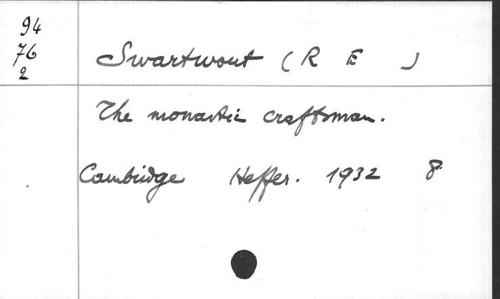 94
76
2
Swartwout (R E )
The monastic craftsman.
Cambridge Heffer. 1932 8